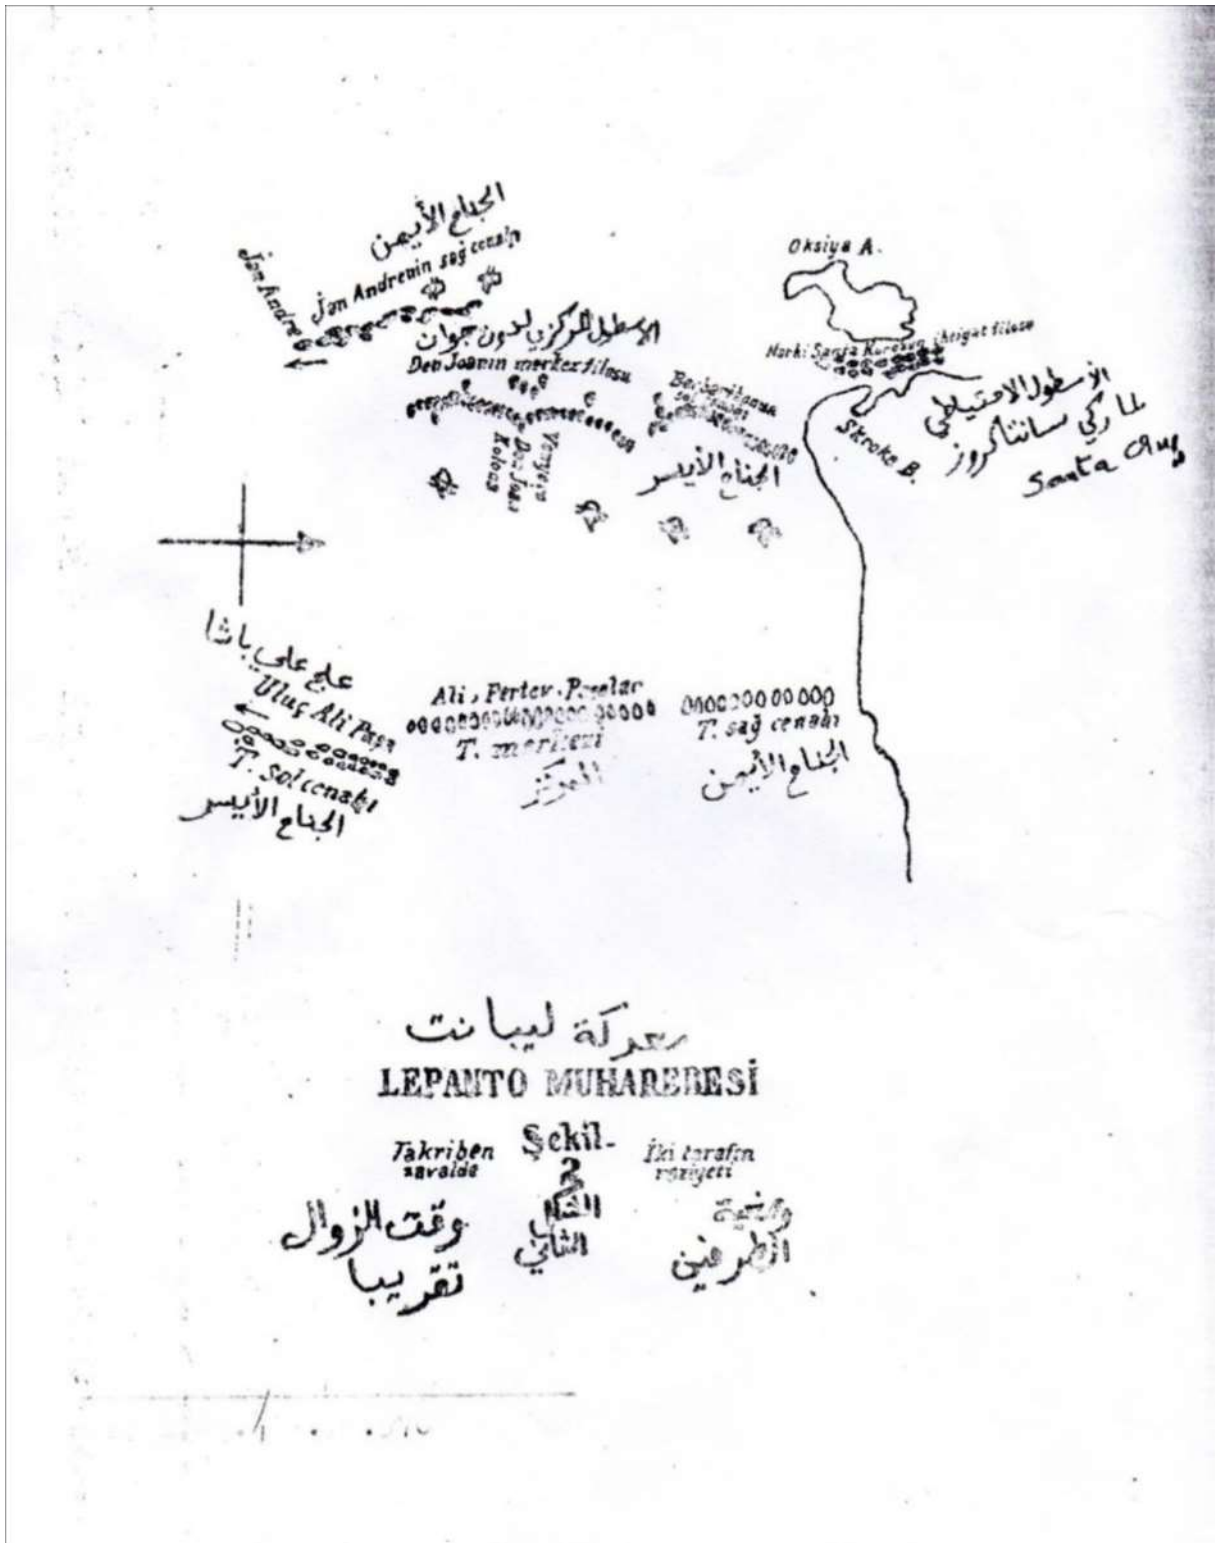 الجناح الأيمن
Jan Andre
Jan Andrenin sağ cenahı
الاسطول المركزي لدون جوان
Don Joanın merkez filosu
Venyeru
Don Joan
Kolona
الجناح الأيسر
Oksiya A.
Marki Santa Kurozun ihtiyat filosu
الأسطول الاحتياطي
لماركي سانتاكروز
Santa Cruz
Skrofa B.
علج علي باشا
Uluç Ali Paşa
T. sol cenahı
الجناح الأيسر
Ali, Pertev Paşalar
T. merkezi
المركز
T. sağ cenahı
الجناح الأيمن
معركة ليبانت
LEPANTO MUHAREBESİ
Şekil-
2
Takriben
zavalde
İki tarafın
vaziyeti
الشكل
الثاني
وقت الزوال
تقريبا
وضعية
الطرفين